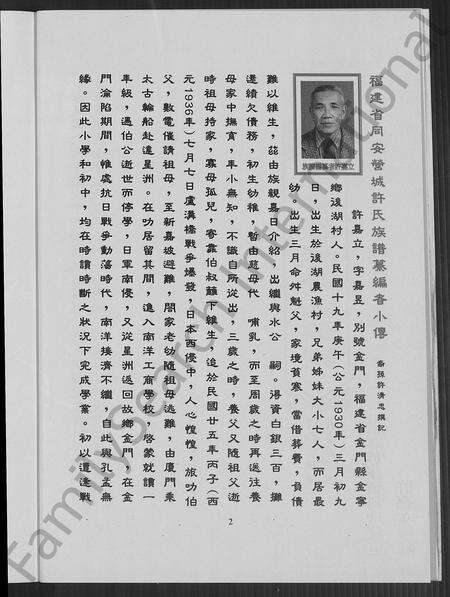 福建省同安營城許氏族譜纂編者小傳
裔孫許清忠撰記
許嘉立，字嘉昱，別號金門，福建省金門縣金寧
鄉後湖村人。民國十九年庚午（公元1930年）三月初九
日，出生於後湖農漁村，兄弟姊妹大小七人，而居最
幼，出生三月命舛魁父，家境貧寒，當借葬費，負債
難以維生，茲由族親嘉日介紹，出繼與水公 嗣。得資白銀三百，攤
還績欠債務，初生幼稚，暫由慈母代 哺乳，而至周歲之時再送往養
母家中撫育，年小無知，不識自所從出，三歲之時，養父又隨祖父逝
時祖母持家，寡母孤兒，寄靠伯叔籬下維生，迨於民國廿五年丙子（西
元1936年）七月七日盧溝橋戰爭爆發，日本西侵中，人心惶惶，旅叻伯
父，數電催請祖母，至新嘉坡避難，閤家老幼隨祖母逃難，由廈門乘
太古輪船赴達星洲。在叻居留其間，進入南洋工商學校，啓蒙就讀一
年級，遇伯公逝世而停學，日軍南侵，又從星洲返回故鄉金門。在金
門淪陷期間，惟處抗日戰爭動蕩時代，南洋接濟不繼，自此與孔孟無
緣。因此小學和初中，均在時讀時斷之狀況下完成學業。初以遭逢戰
2
FamilySearch International